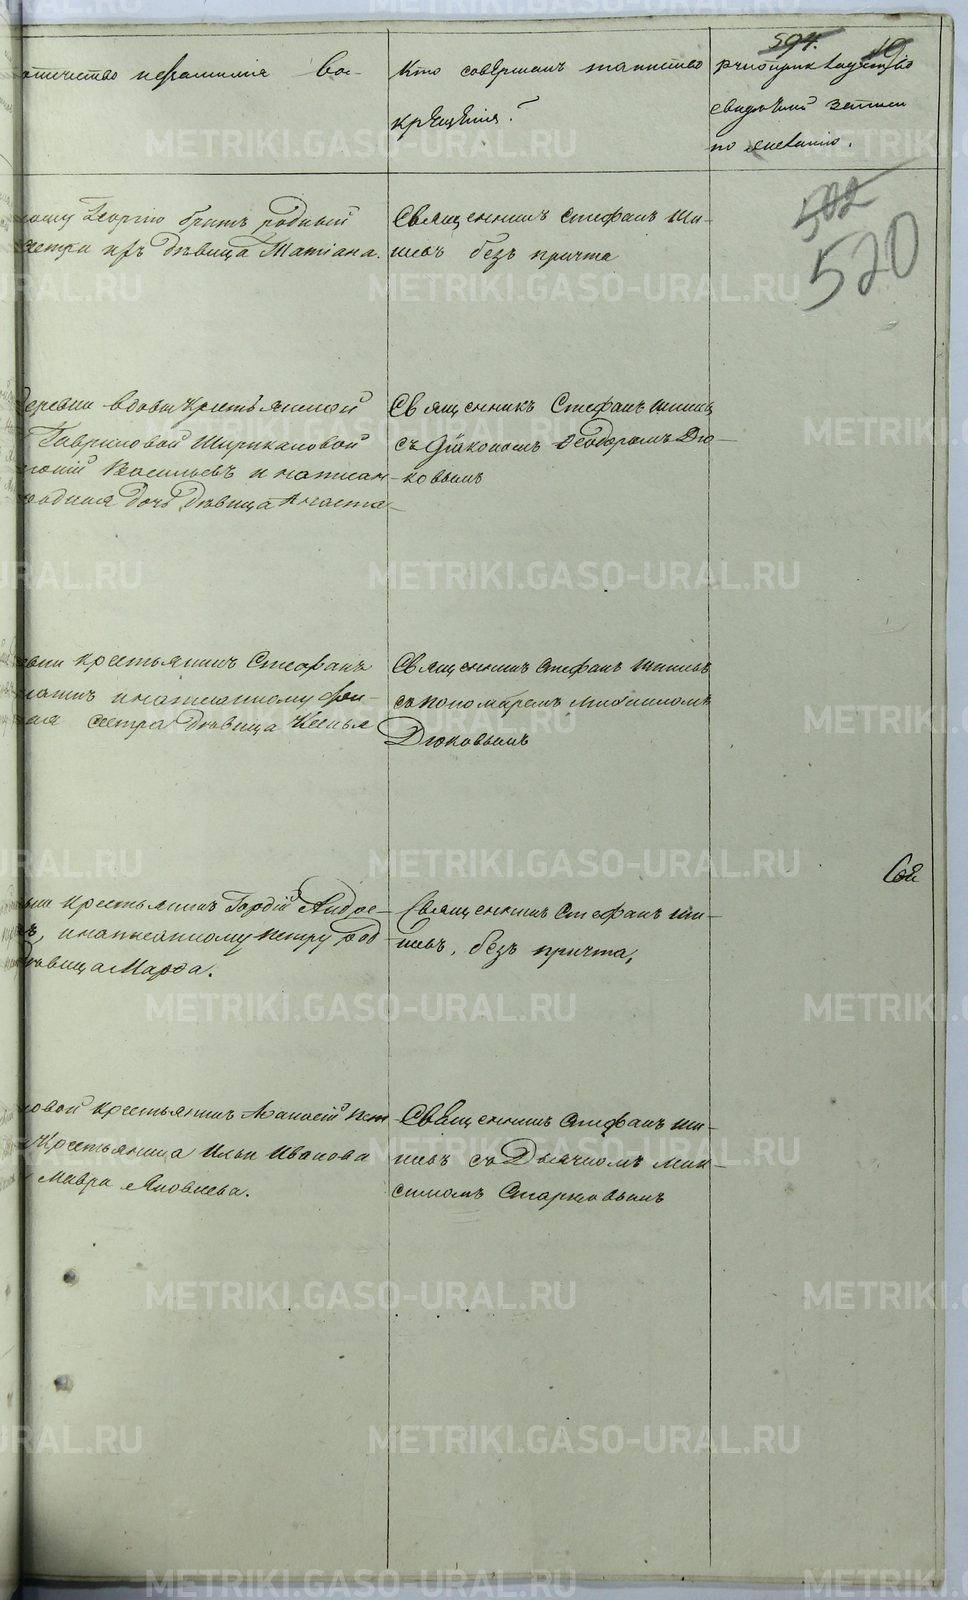 594. 19
отчество и фамилия вос-
Кто совершалъ таинство
крещенія?
Рукоприкладство
свидѣтелей записи
по желанію.
502
520
Георгію братъ родный
сестра ихъ дѣвица Татіана.
Священникъ Стефанъ Ши-
шевъ безъ причта
деревни вдовы крестьянской
Гавриловой Ширикаловой
Васильевъ и написан-
родная дочь дѣвица Анаста-
Священникъ Стефанъ Шишевъ
съ Діакономъ Ѳеодоромъ Дю-
ковымъ
крестьянинъ Стефанъ
и написанному
сестра дѣвица Ксенья
Священникъ Стефанъ Шишевъ
съ пономаремъ
Дюковымъ
крестьянинъ Гордій Андре-
и написанному Петру род-
дѣвица Марѳа.
Священникъ Стефанъ Ши-
шевъ, безъ причта,
Сей
крестьянинъ Аѳанасій Пет
крестьянина Ильи Иванова
Мавра Яковлева.
Священникъ Стефанъ Ши-
шевъ съ Дьячкомъ Мак-
симомъ Старковымъ
METRIKI.GASO-URAL.RU